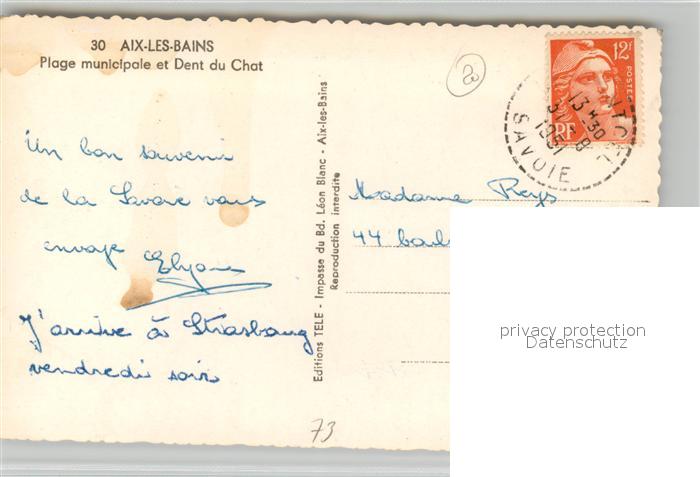 30 AIX-LES-BAINS
Plage municipale et Dent du Chat
Un bon souvenir
de la Savoie vous
envoye Elyane
J'arrive à Strasbourg
vendredi soir
Editions TELE - Impasse du Bd. Léon Blanc - Aix-les-Bains
Reproduction interdite
20
12F
POSTES
RF
13 H 30
3 - 8
1951
SAVOIE
Madame Reys
44
privacy protection
Datenschutz
73